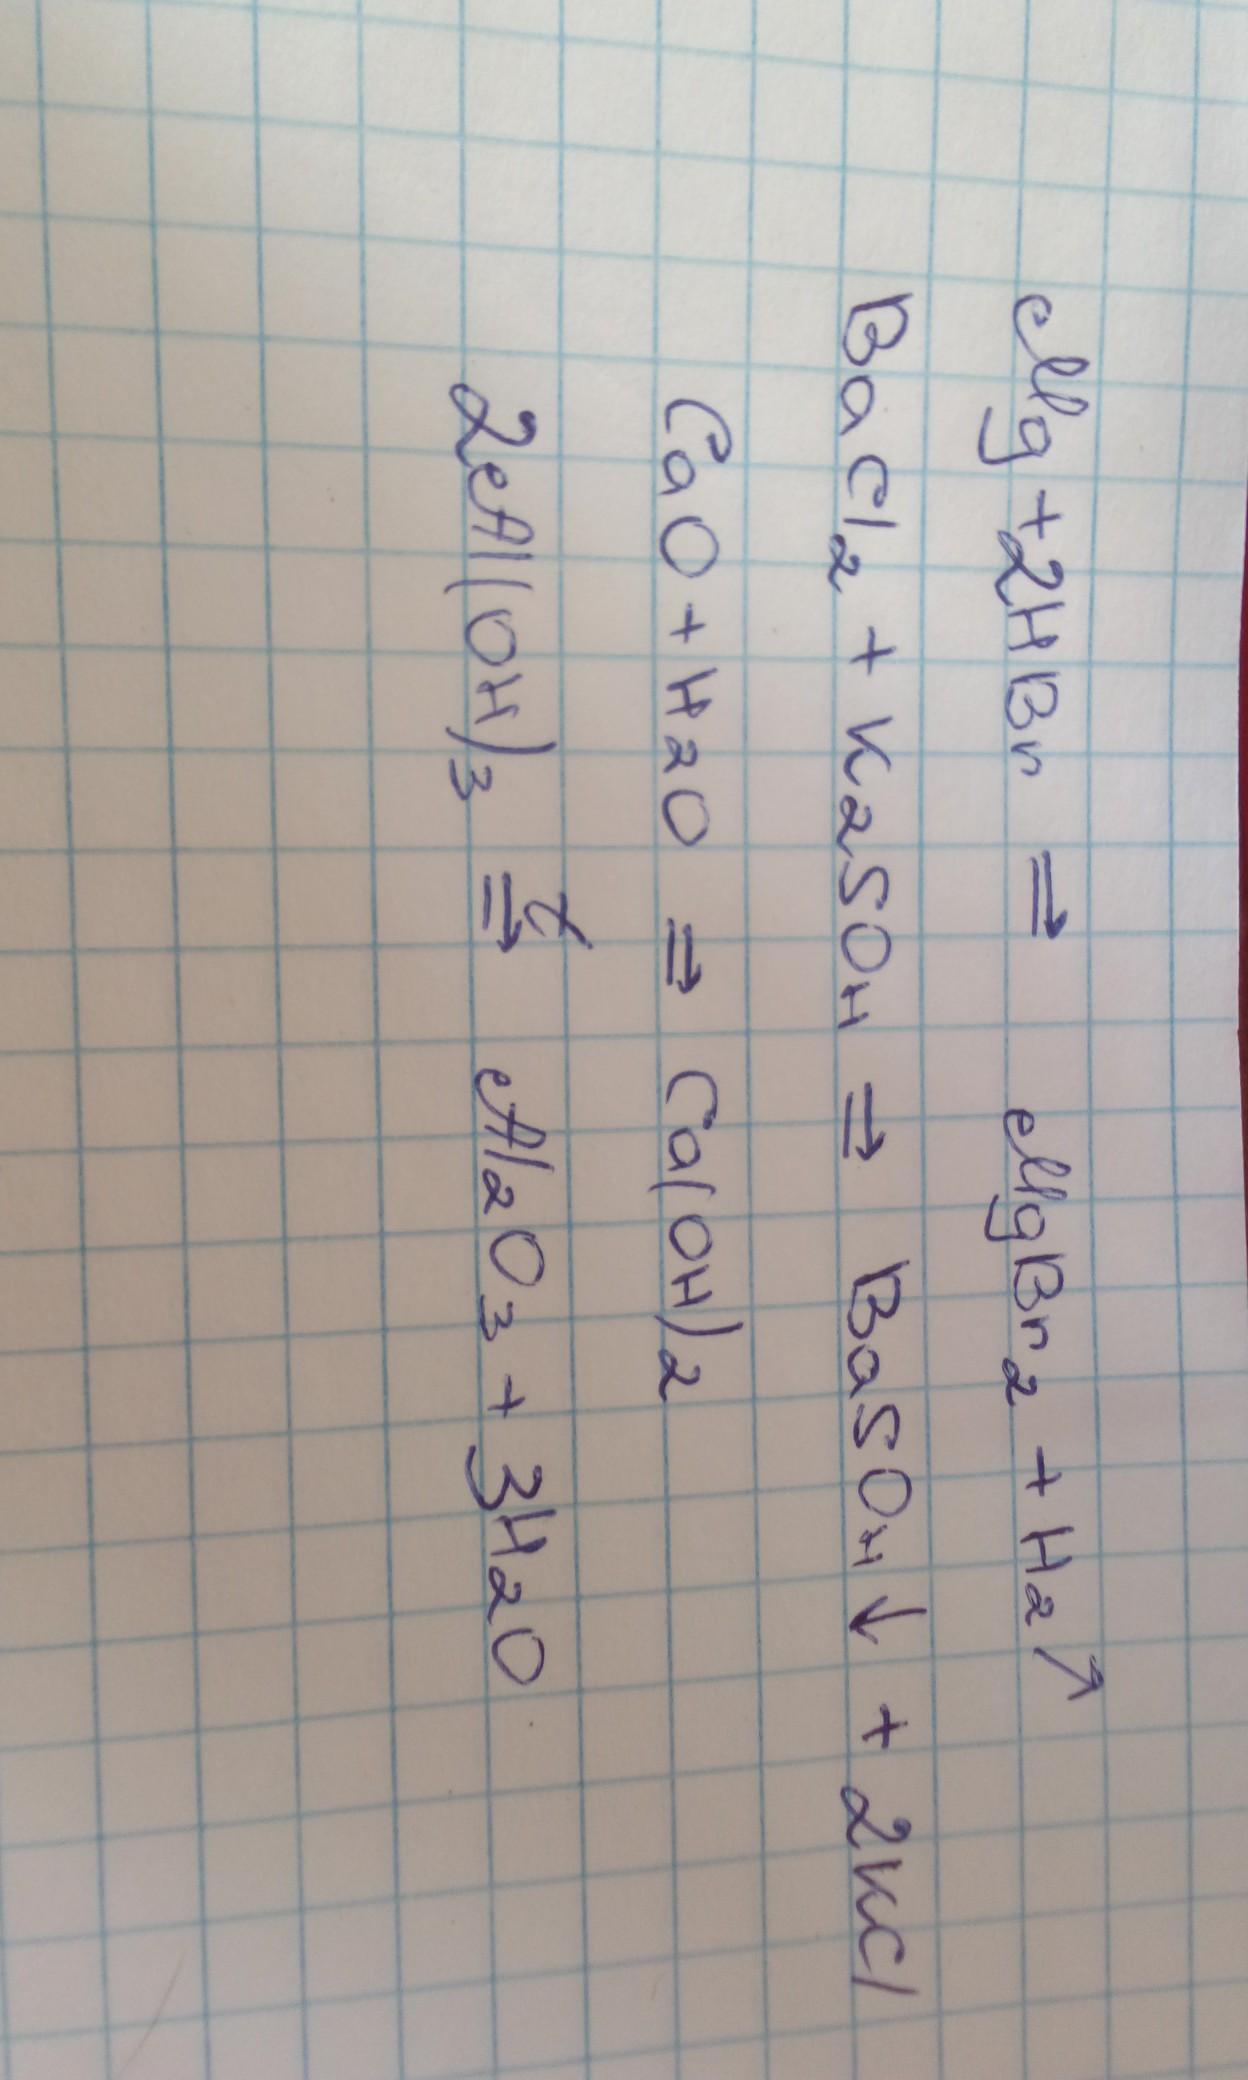 Mg + 2HBr ⇒ MgBr₂ + H₂↑
BaCl₂ + K₂SO₄ ⇒ BaSO₄↓ + 2KCl
CaO + H₂O ⇒ Ca(OH)₂
2Al(OH)₃ ⇒ᵗ Al₂O₃ + 3H₂O